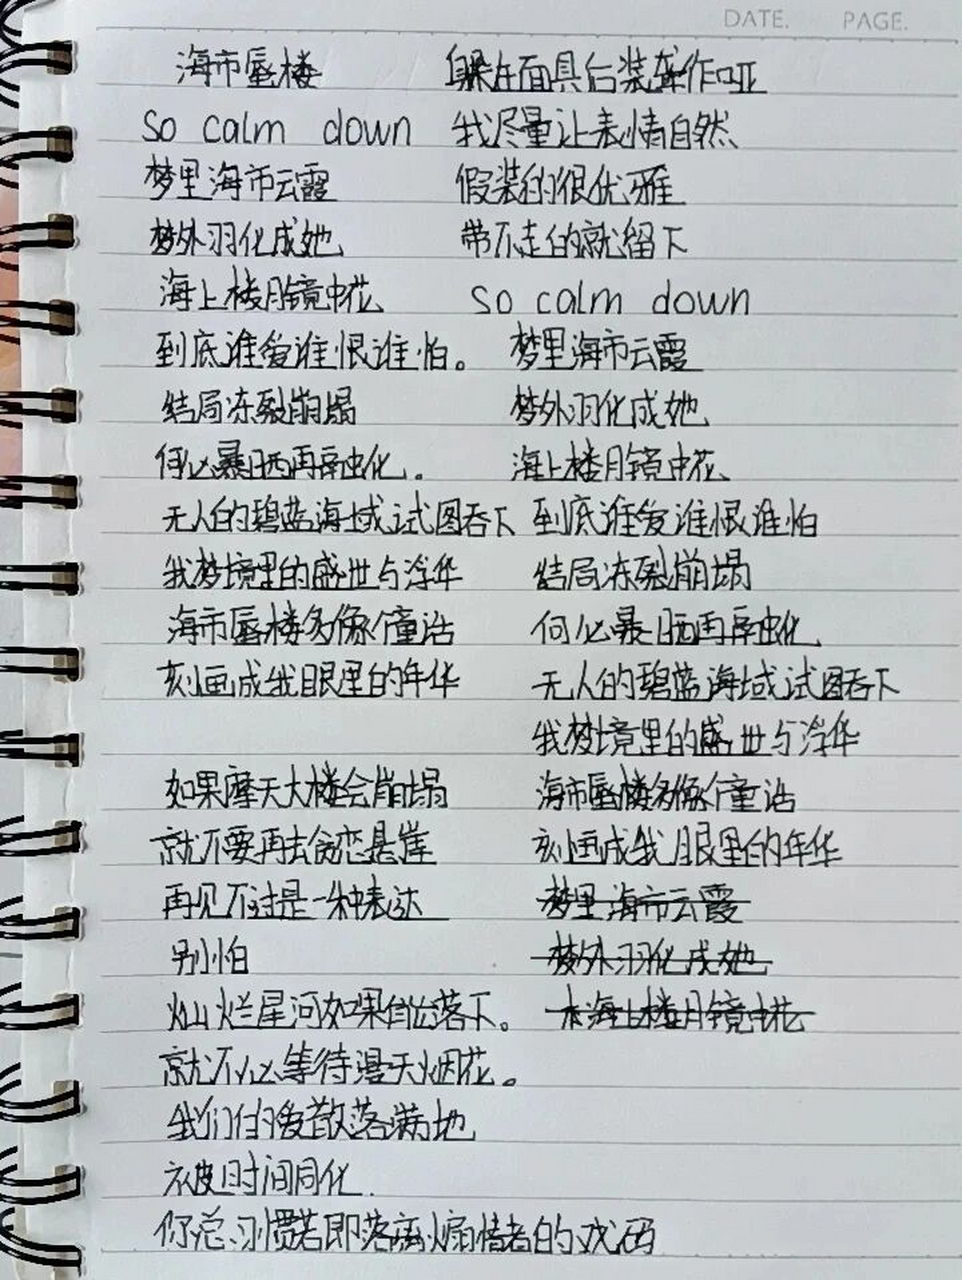 DATE. PAGE.
海市蜃楼
so calm down
梦里海市云霞
梦外羽化成她
海上楼月镜中花
到底谁爱谁恨谁怕。
结局冻裂崩塌
何必暴晒再孵化。
无人的碧蓝海域试图吞下
我梦境里的盛世与浮华
海市蜃楼多像个童话
刻画成我眼里的年华
如果摩天大楼会崩塌
就不要再去贪恋悬崖
再见不过是一种表达
别怕
灿烂星河如果能落下。
就不必等待漫天烟花。
我们的爱散落满地
被时间同化
你总习惯若即若离煽情者的戏码
躲在面具后装聋作哑
我尽量让表情自然
假装的很优雅
带不走的就留下
so calm down
梦里海市云霞
梦外羽化成她
海上楼月镜中花
到底谁爱谁恨谁怕
结局冻裂崩塌
何必暴晒再孵化
无人的碧蓝海域试图吞下
我梦境里的盛世与浮华
海市蜃楼多像个童话
刻画成我眼里的年华
梦里海市云霞
梦外羽化成她
海上楼月镜中花